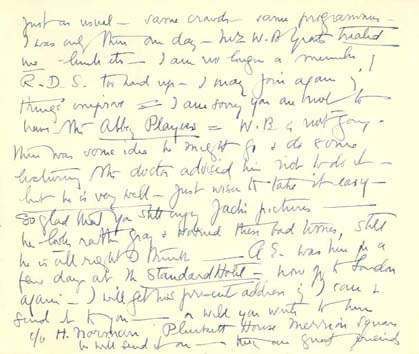 just as usual — same crowds — same programmes —
I was only there one day — Mrs W. B Yeats treated
me — lunch etc — I am no longer a member
R. D. S. too hard up — I may join again if
things improve = I am sorry you are not to
have the Abbey Players = W. B is not going.
there was some idea he might go & do some
lecturing the doctor advised him not to do it —
but he is very well — just wiser to take it easy —
So glad that you still enjoy Jack's pictures —
he looks rather gray & worried these bad times, still
he is all right I think — A E. was here for a
few days at the Standard Hotel = now off to London
again — I will get his present address if I can &
send it to you — or will you write to him
c/o H. Norman Plunkett House Merrion Square
he will send it on — they are great friends